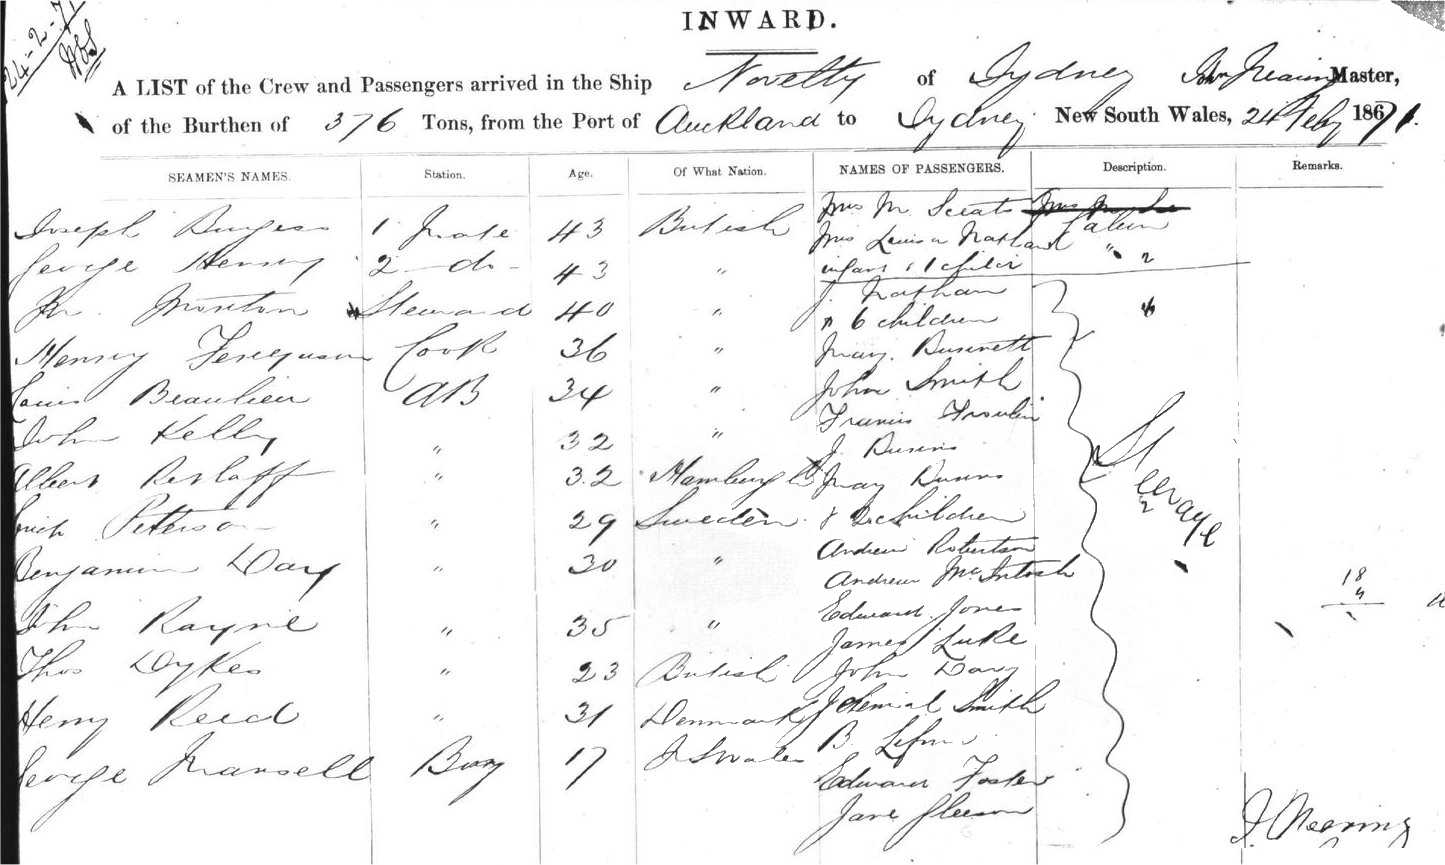 24-2-71
INWARD.
A LIST of the Crew and Passengers arrived in the Ship Novelty of Sydney John Nearing Master,
of the Burthen of 376 Tons, from the Port of Auckland to Sydney New South Wales, 24 Feby 1871.
SEAMEN'S NAMES. Station. Age. Of What Nation. NAMES OF PASSENGERS. Description. Remarks.
Joseph Burgess 1 Mate 43 British Mrs M. Sceats Cabin
George Henry 2 -do- 43 " Mrs Louisa Nathan "
infant & 1 child
Morton Steward 40 " J. Nathan
" 6 children
Henry Ferguson Cook 36 " May Burnett
Louis Beaulieu AB 34 " John Smith
Francis
John Kelly " 32 " J. Burns
Albert Retlaff " 32 Hamburg May Burns
Peterson " 29 Sweden & 2 children
Benjamin Day " 30 " Andrew Robertson
Andrew McIntosh
John Rayne " 35 " Edward Jones
James Luke
Thos Dykes " 23 British John Davy
Henry Reed " 31 Denmark Smith
B.
George Mansell Boy 17 N S Wales Edward Foster
Jane Gleeson
Steerage
18
J. Nearing